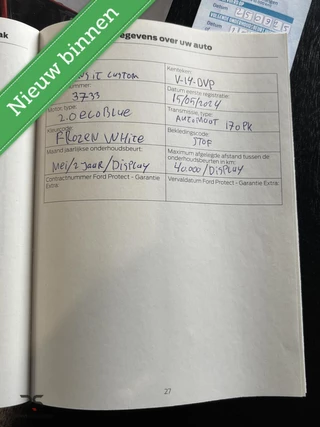 Nieuw binnen
egevens over uw auto
Kenteken:
CUSTOM
V-14-DVP
Datum eerste registratie:
3733
15/05/2024
Motor type:
Transmissie type:
2.0 ECOBLUE
AUTOMAAT 170 PK
Bekledingscode:
FROZEN WHITE
STOF
Maand jaarlijkse onderhoudsbeurt:
Maximum afgelegde afstand tussen de
onderhoudsbeurten in km:
MEI/2 JAAR/DISPLAY
40.000/DISPLAY
Contractnummer Ford Protect - Garantie
Extra:
Vervaldatum Ford Protect - Garantie Extra:
27